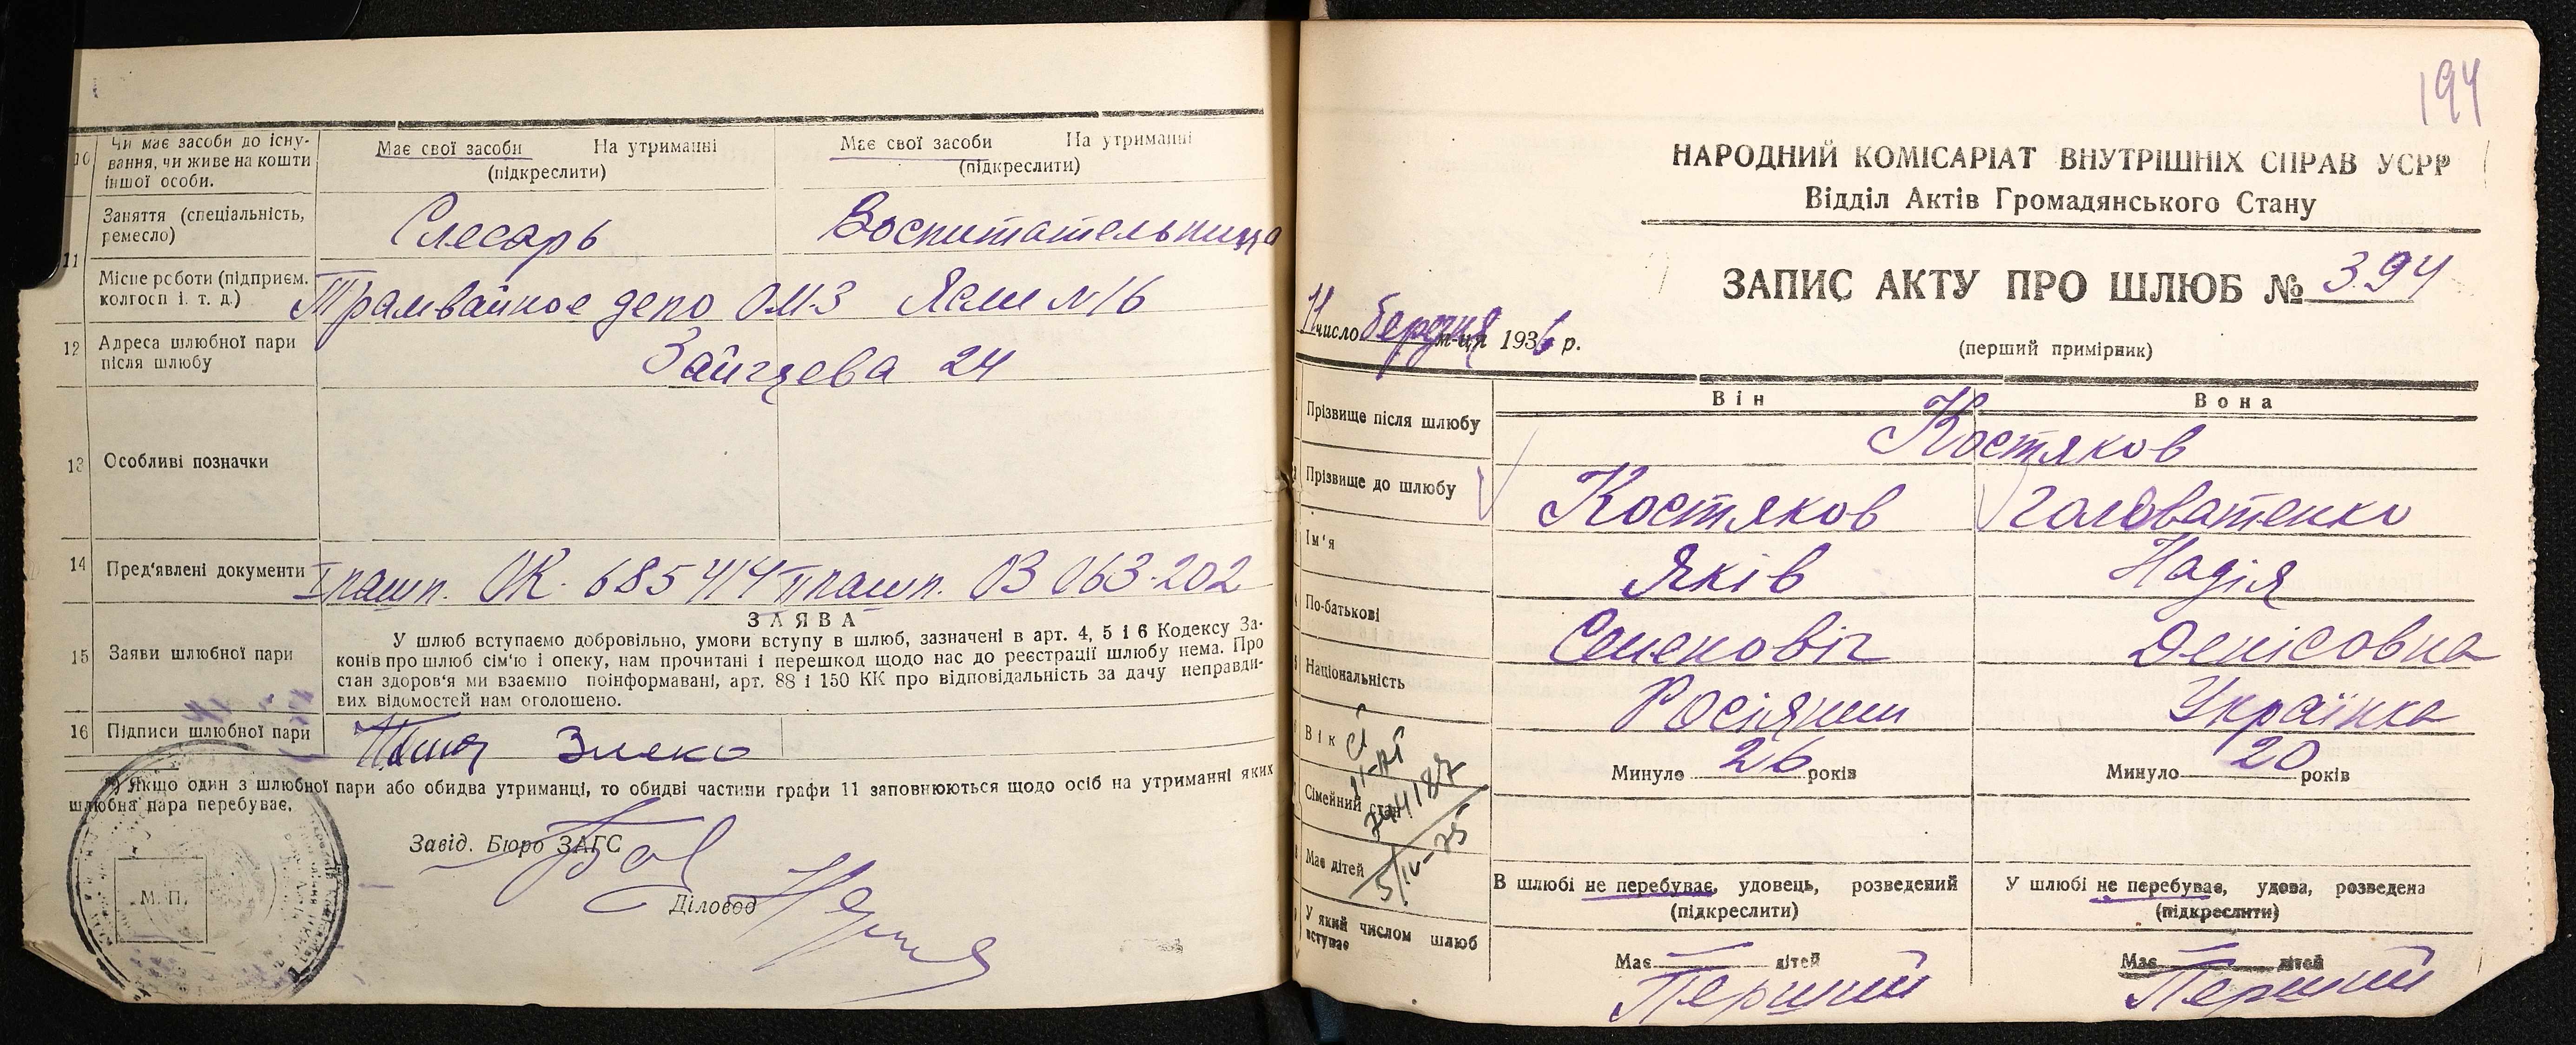 10 Чи має засоби до існу-
вання, чи живе на кошти
іншої особи.
Має свої засоби На утриманні
(підкреслити)
Має свої засоби На утриманні
(підкреслити)
11 Заняття (спеціальність,
ремесло)
Слесарь
Воспитательница
Місце роботи (підприєм.
колгосп і. т. д.)
Трамвайное депо ОМЗ Ясли №16
12 Адреса шлюбної пари
після шлюбу
24
13 Особливі позначки
14 Пред'явлені документи
I пашп. ОК. 685414 II пашп. ОЗ 063.202
15 Заяви шлюбної пари
ЗАЯВА
У шлюб вступаємо добровільно, умови вступу в шлюб, зазначені в арт. 4, 5 і 6 Кодексу За-
конів про шлюб сім'ю і опеку, нам прочитані і перешкод щодо нас до реєстрації шлюбу нема. Про
стан здоров'я ми взаємно поінформавані, арт. 88 і 150 КК про відповідальність за дачу неправди-
вих відомостей нам оголошено.
16 Підписи шлюбної пари
*) Якщо один з шлюбної пари або обидва утриманці, то обидві частини графи 11 заповнюються щодо осіб на утриманні яких
шлюбна пара перебуває.
Завід. Бюро ЗАГС
Діловод
М. П.
194
НАРОДНИЙ КОМІСАРІАТ ВНУТРІШНІХ СПРАВ УСРР
Відділ Актів Громадянського Стану
ЗАПИС АКТУ ПРО ШЛЮБ № 394
11 число березня м-ця 1936 р.
(перший примірник)
Він Вона
Прізвище після шлюбу
Костяков
Прізвище до шлюбу
Костяков Головатенко
Ім'я
Яків Надія
По-батькові
Семеновіч Денісовна
Національність
Росіянин Українка
Вік
Минуло 26 років
Минуло 20 років
Сімейний стан
244187
5/IV-75
Має дітей
В шлюбі не перебуває, удовець, розведений
(підкреслити)
У шлюбі не перебуває, удова, розведена
(підкреслити)
У який числом шлюб
вступає
Має — дітей
Має — дітей
Перший Перший